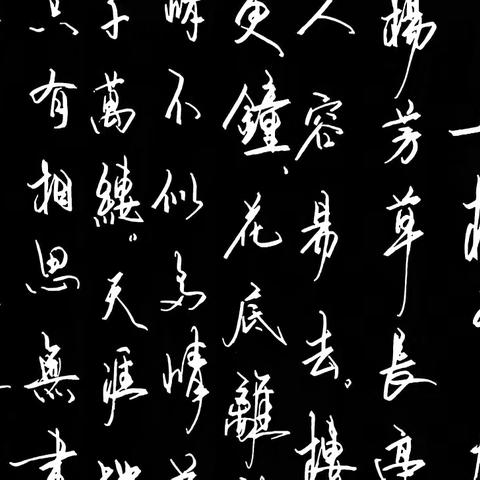 楊芳草長亭
人容易去。樓
更鐘、花底離
情不似多情
千萬縷。天涯地
只有相思無盡